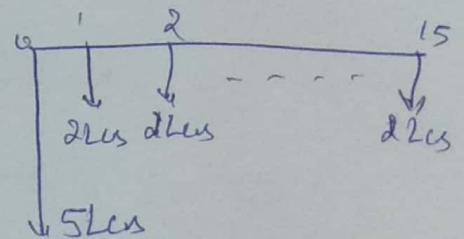 0 1 2 15
2Lcs 2Lcs - - - - 2Lcs
5Lcs